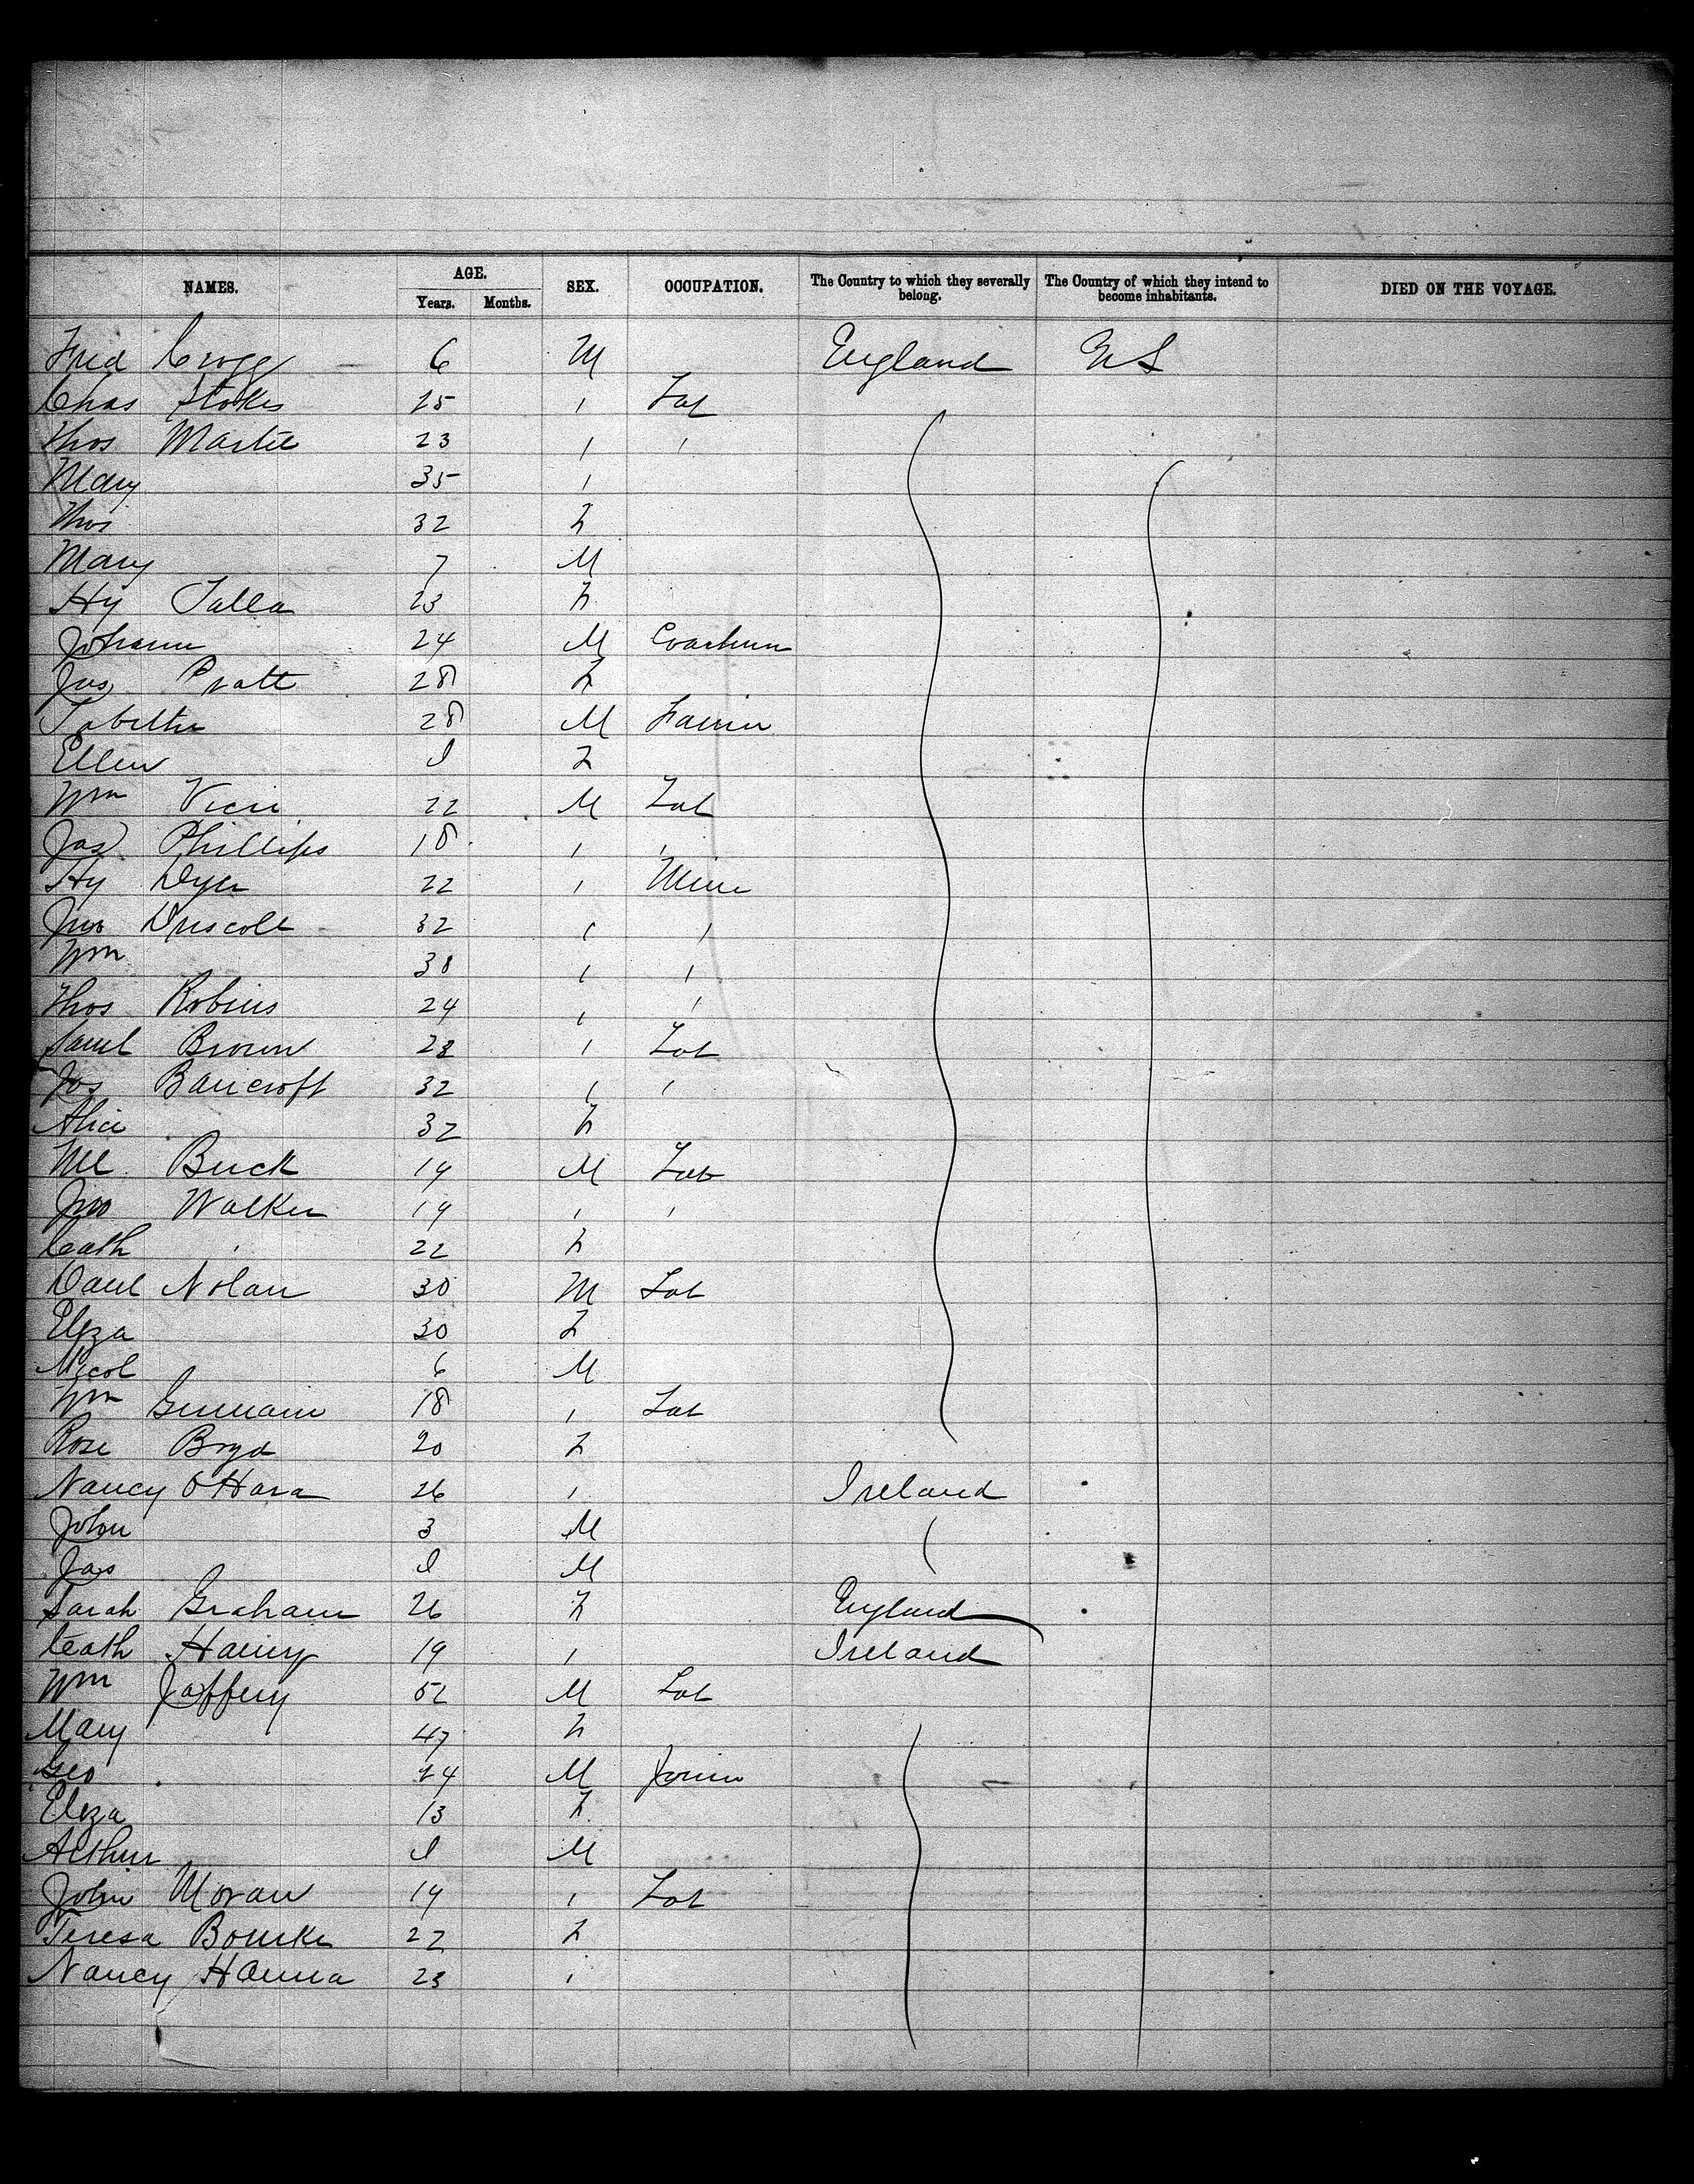 NAMES. AGE. SEX. OCCUPATION. The Country to which they severally belong. The Country of which they intend to become inhabitants. DIED ON THE VOYAGE.
Years. Months.
Fred Crogg 6 M England US
Chas Stokes 25 ' Lab
Thos Martil 23 ' '
Mary 35 '
Thos 32 F
Mary 7 M
Hy Talla 23 F
Johann 24 M Coachmn
Jas Pratt 28 F
Tabitha 28 M Farrier
Ellen I F
Wm 22 M Lab
Jas Phillips 18 ' '
Hy Dyer 22 ' Miner
Jno Driscoll 32 ' '
Wm 38 ' '
Thos Robins 24 ' '
Saml Brown 28 ' Lab
Jos Bancroft 32 ' '
Alice 32 F
Ml Buck 19 M Lab
Jno Walker 19 ' '
Cath ' 22 F
Danl Nolan 30 M Lab
Eliza 30 F
Nicol 6 M
Wm Germain 18 ' Lab
Rose Boyd 20 F
Nancy O'Hara 26 ' Ireland
John 3 M
Jas I M
Sarah Graham 26 F England
Cath Haury 19 ' Ireland
Wm Jaffery 52 M Lab
Mary 47 F
Geo 24 M Joiner
Eliza 13 F
Arthur I M
John Moran 19 ' Lab
Teresa Bourke 22 F
Nancy Hanna 23 '